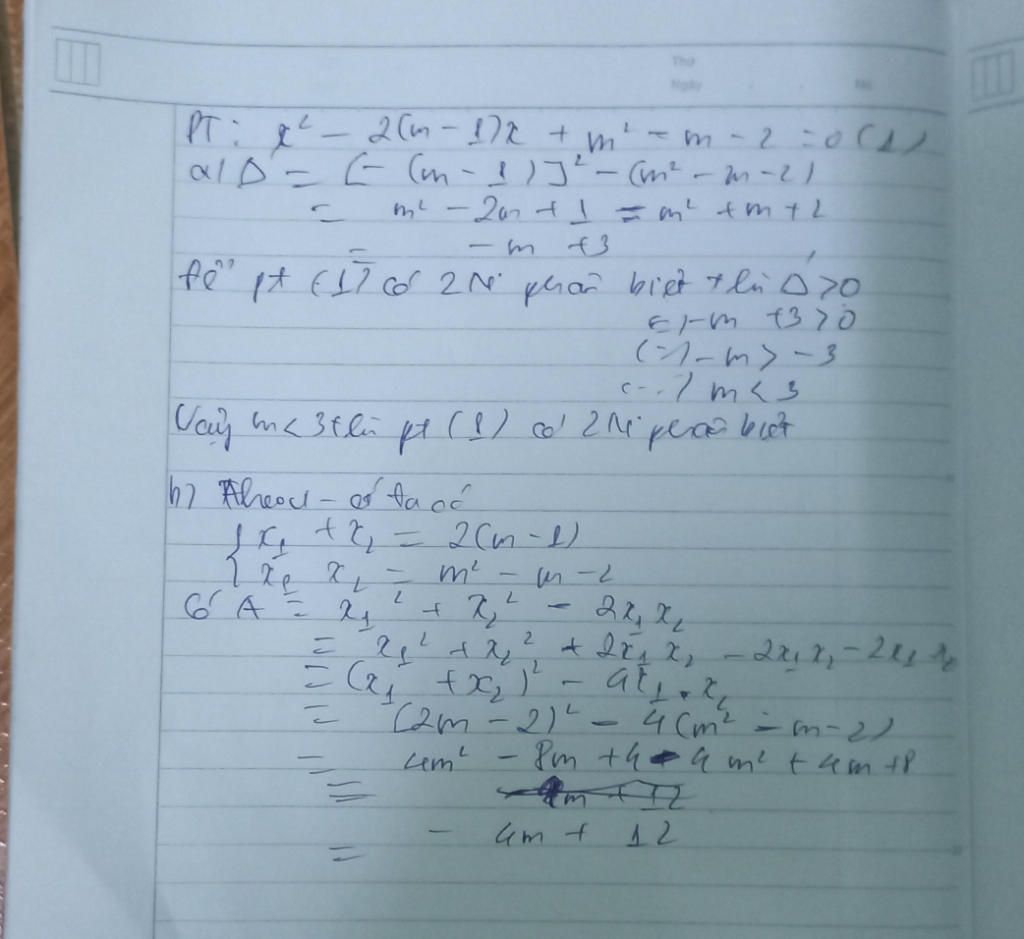 Thứ
Ngày No.
PT: x² - 2(m - 1)x + m² - m - 2 = 0 (1)
a) Δ' = [- (m - 1)]² - (m² - m - 2)
= m² - 2m + 1 - m² + m + 2
= - m + 3
Để pt (1) có 2 N° phân biệt thì Δ' > 0
<=> - m + 3 > 0
<=> - m > - 3
<=> m < 3
Vậy m < 3 thì pt (1) có 2 N° phân biệt
b) Theo vi - ét ta có
{ x₁ + x₂ = 2(m - 1)
{ x₁ x₂ = m² - m - 2
Có A = x₁² + x₂² - 2x₁ x₂
= x₁² + x₂² + 2x₁ x₂ - 2x₁ x₂ - 2x₁ x₂
= (x₁ + x₂)² - 4x₁ . x₂
= (2m - 2)² - 4(m² - m - 2)
= 4m² - 8m + 4 - 4m² + 4m + 8
=
= - 4m + 12